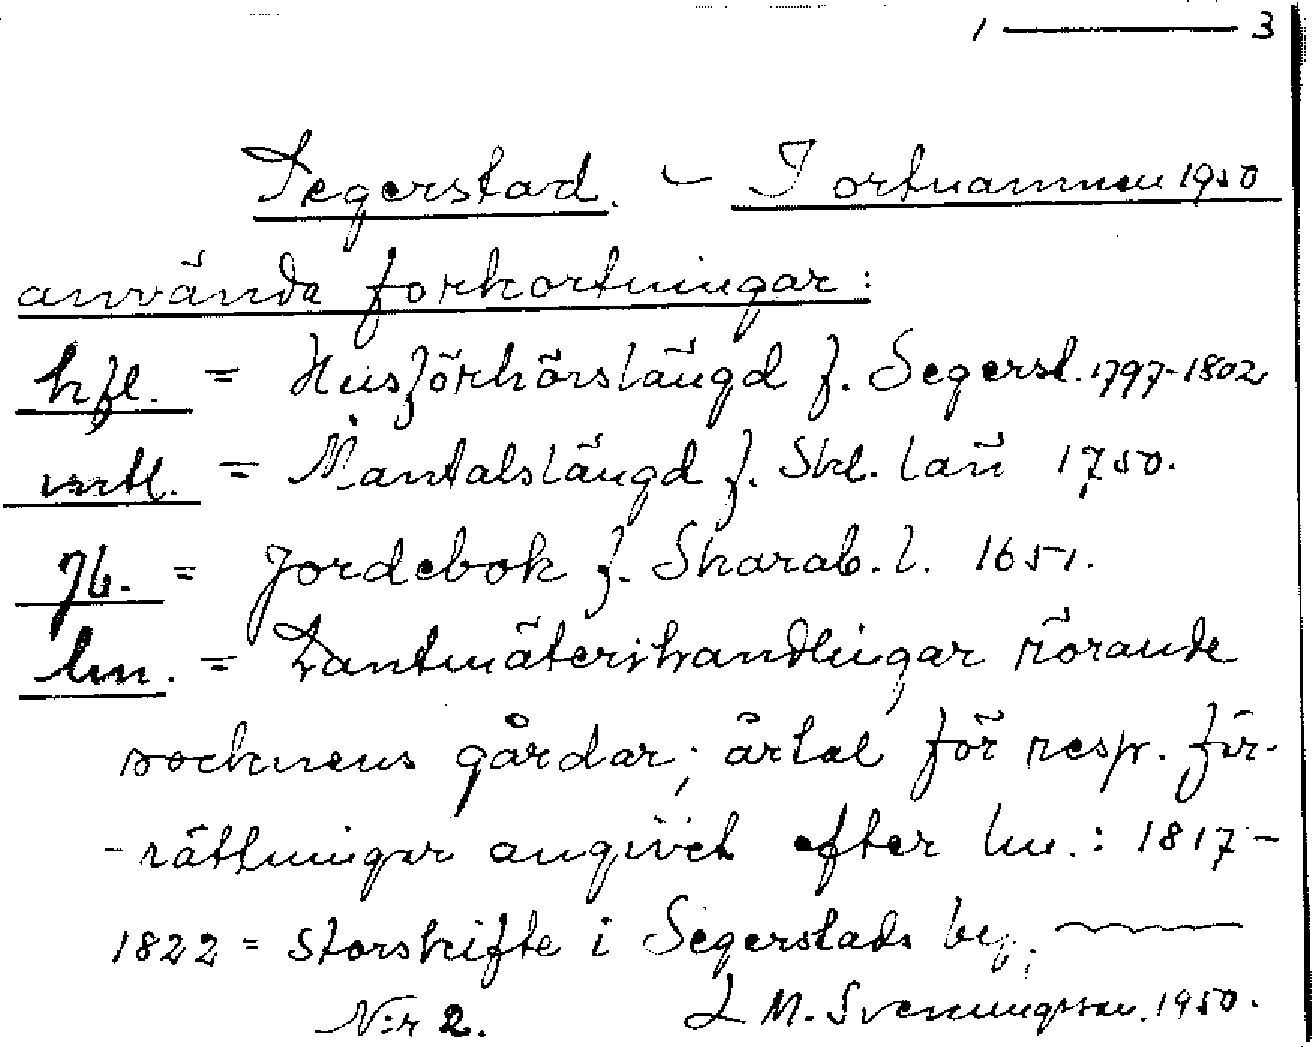 1 — 3
Segerstad. - I ortnamnen 1950
använda förkortningar:
hfl. = Husförhörslängd f. Segerst. 1797-1802
mtl. = Mantalslängd f. Skl. län 1750.
Jb. = Jordebok f. Skarab. l. 1651.
lm. = Lantmäterihandlingar rörande
socknens gårdar; årtal för resp. för-
-rättningar angivet efter lm.: 1817-
1822 = storskifte i Segerstads by;
N:r 2. L M. Svenungsson. 1950.